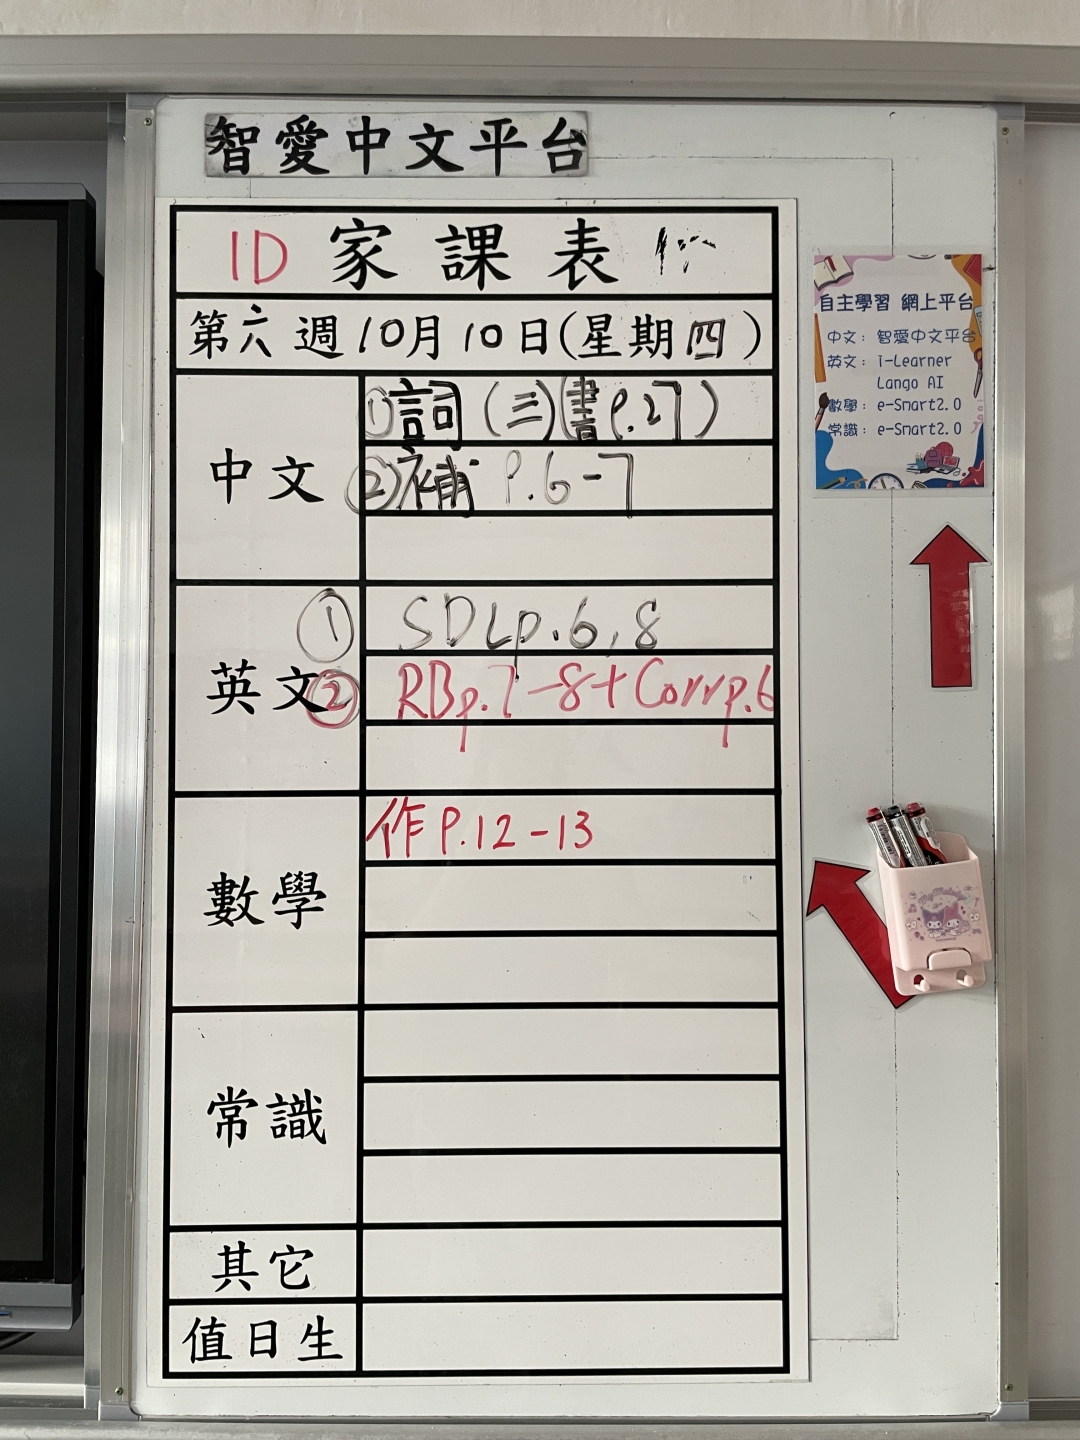 智愛中文平台
1D 家課表
第六週10月10日(星期四)
中文
①詞(三)(書P.27)
②補 P.6-7
英文
① SDLp.6,8
② RBp.7-8+Corrp.6
數學
作P.12-13
常識
其它
值日生
自主學習 網上平台
中文：智愛中文平台
英文：i-Learner
Lango AI
數學：e-Smart2.0
常識：e-Smart2.0